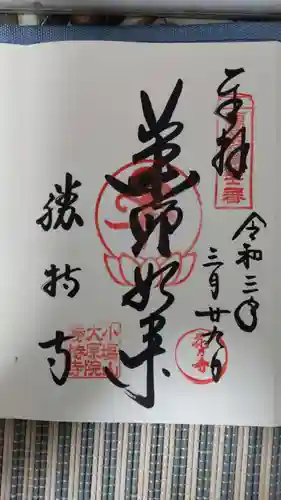 奉拝
令和三年
三月廿九日
薬師如来
勝持寺
小塩山
大原院
勝持寺
花の寺